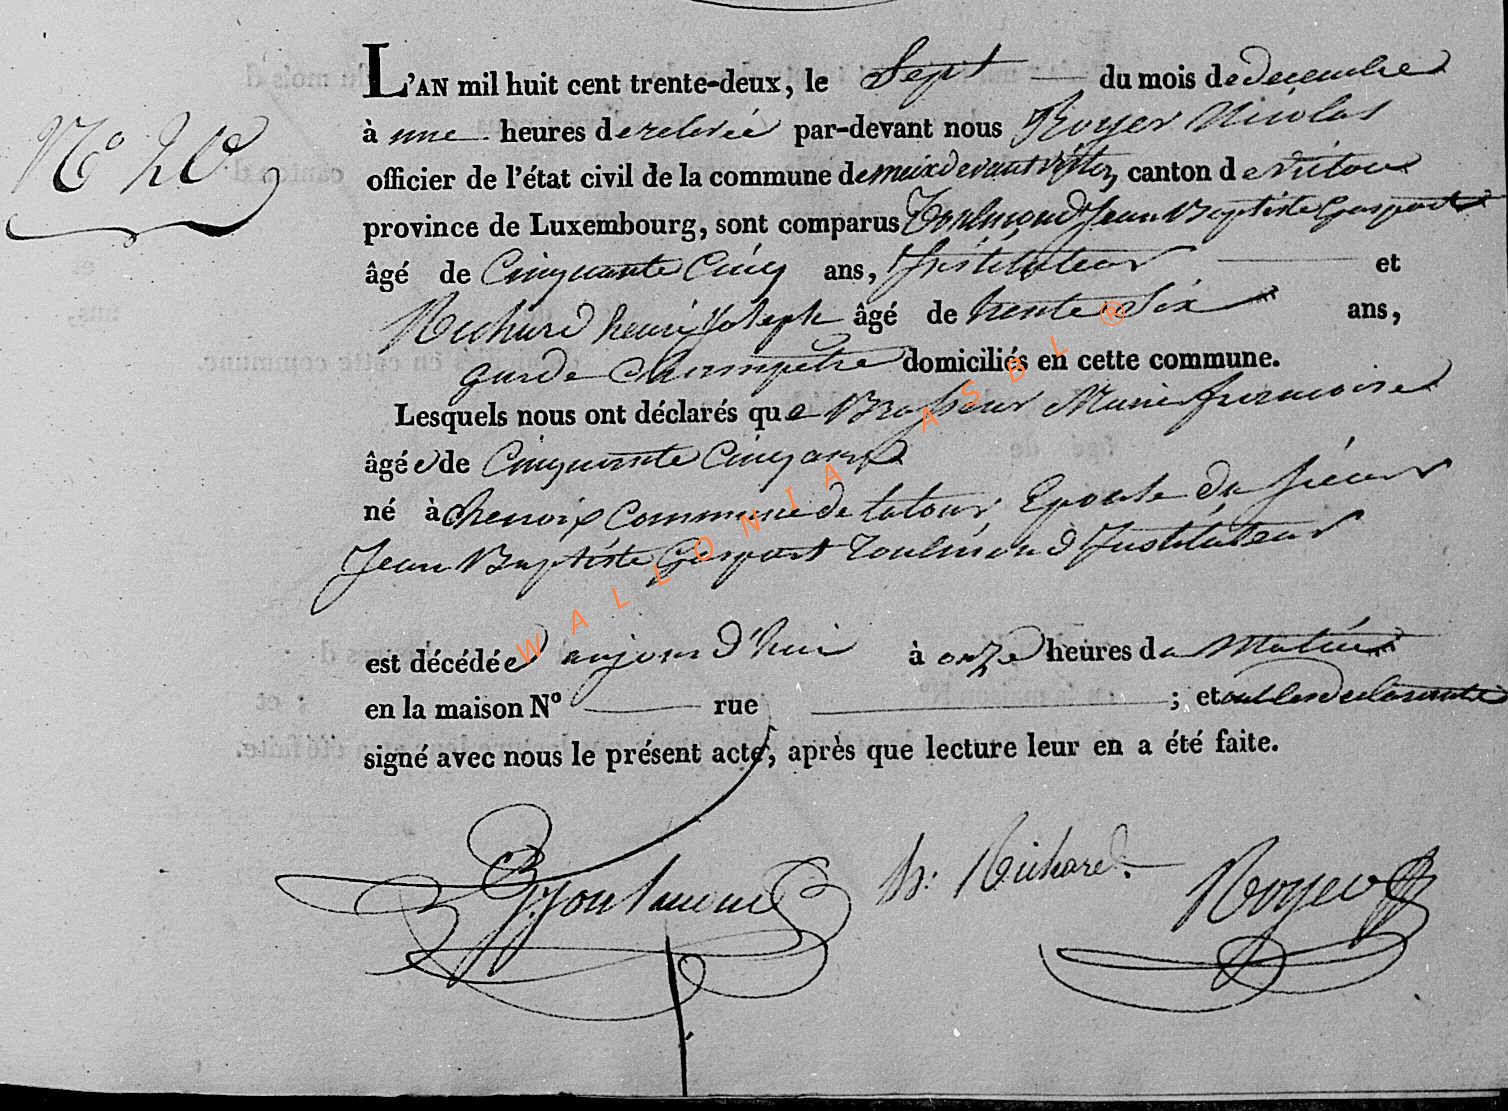 L'AN mil huit cent trente-deux, le Sept du mois de decembre
N° 20
à une heures de relevée par-devant nous Royer Nicolas
officier de l'état civil de la commune de meix devant virton, canton de virton
province de Luxembourg, sont comparus Toulmond Jean Baptiste Gaspart
âgé de Cinquante Cinq ans, Instituteur et
Richard henri Joseph âgé de trente Six ans,
garde Champetre domiciliés en cette commune.
Lesquels nous ont déclarés que Brasseur Marie francoise
âgée de Cinquante Cinq ans
né à chenoix Commune de latour Epouse du Sieur
Jean Baptiste Gaspart Toulmond Instituteur
est décédée aujourd'hui à onze heures du Matin
en la maison N° rue ; et ont les declarants
signé avec nous le présent acte, après que lecture leur en a été faite.
Toulmond h: Richard Royer
WALLONIA ASBL ®